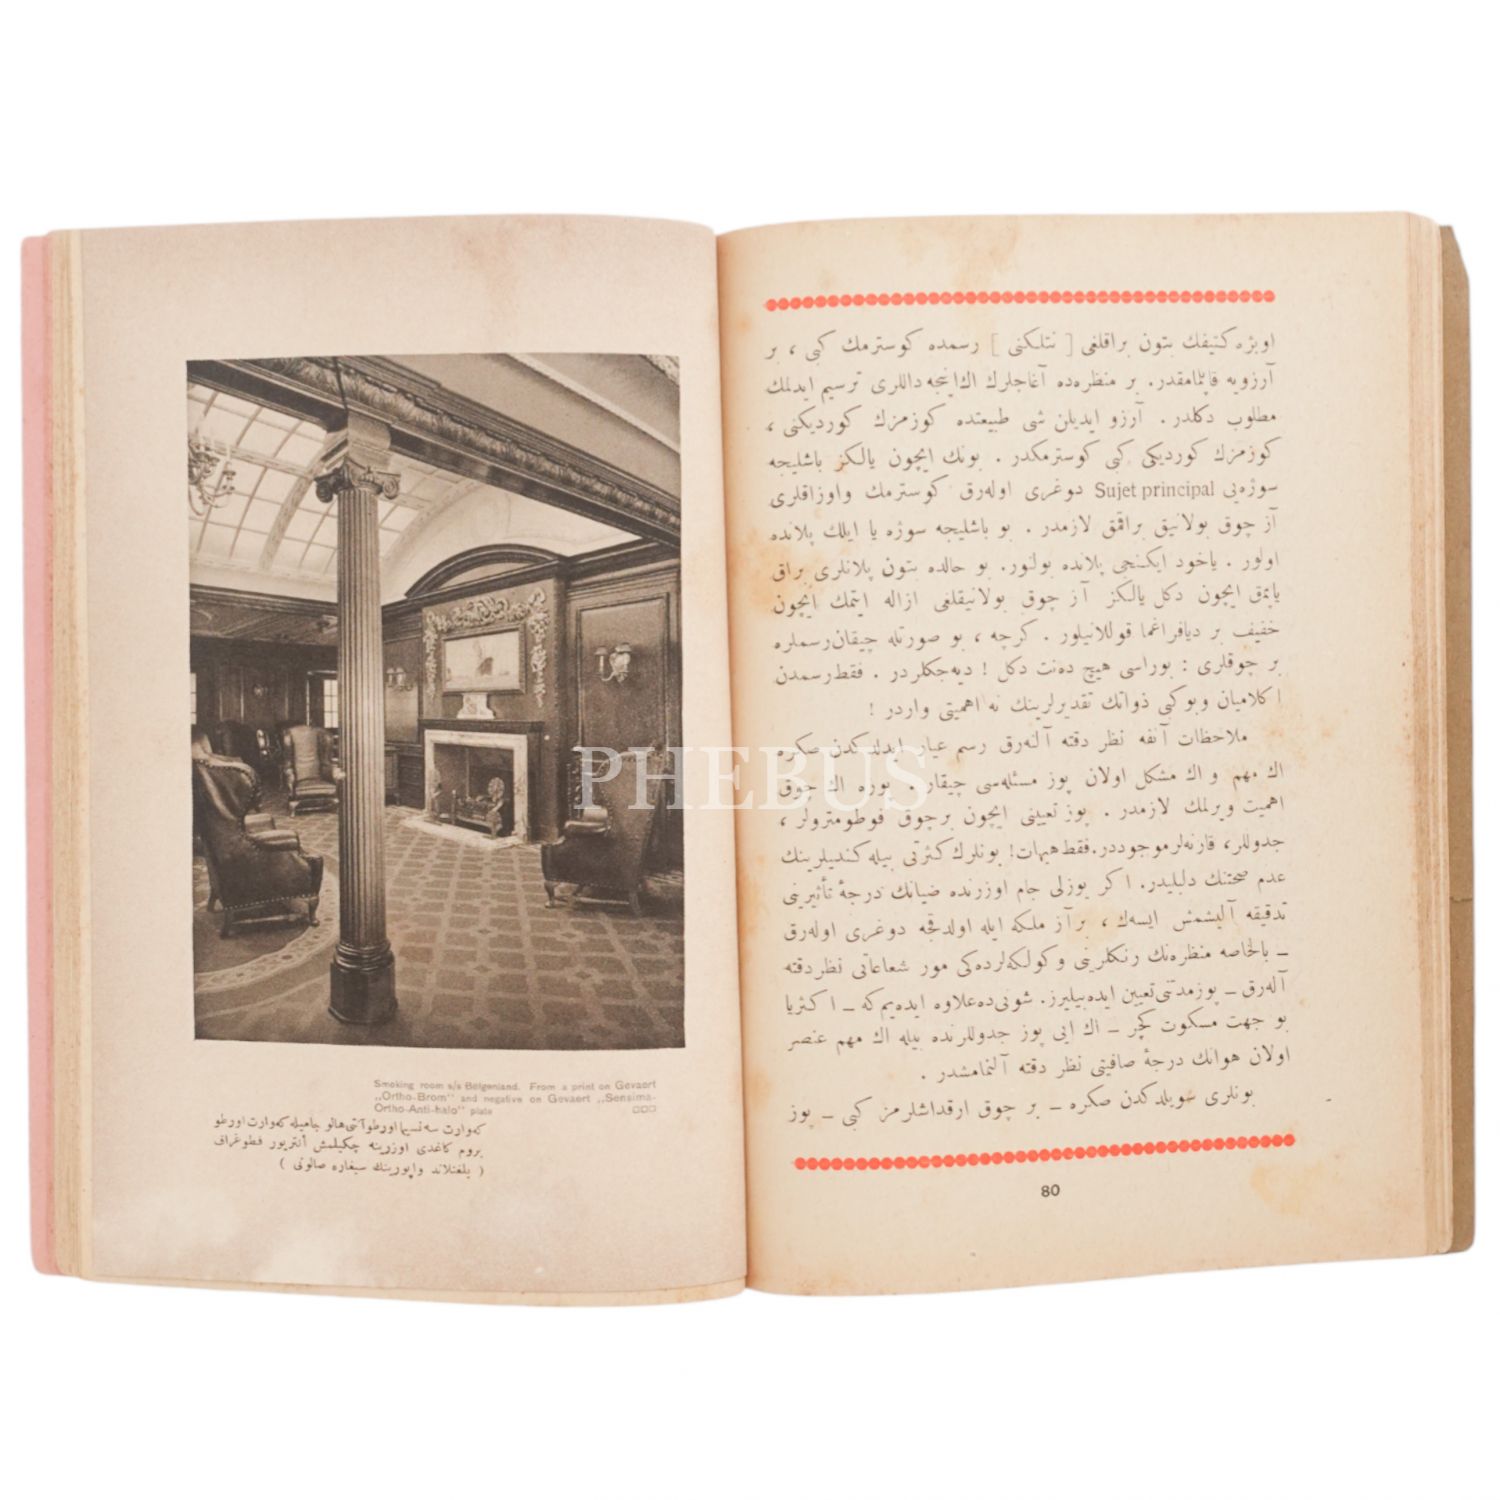 Smoking room s/s Belgenland. From a print on Gevaert
„Ortho-Brom" and negative on Gevaert „Sensima-
Ortho-Anti-halo" plate
كه وارت سه نسیما اورطو آنتی هالو جامیله كه وارت اورطو
بروم كاغدی اوزرینه چكیلمش أنتریور فطوغراف
( بلغنلاند واپورینك سیغاره صالونی )
PHEBUS
اوبژه كتیفك بتون براقلغی [ نتلكنی ] رسمده كوسترمك كبی ، بر
آرزویه قاپلمامقدر. بر منظره ده آغاجلرك اك اینجه داللری ترسیم ایدلمك
مطلوب دكلدر . آرزو ایدیلن شی طبیعتده كوزمزك كوردیكنی ،
كوزمزك كوردیكی كبی كوسترمكدر . بونك ایچون یالكز باشلیجه
سوژه یی Sujet principal دوغری اوله رق كوسترمك واوزاقلری
آز چوق بولانیق براقمق لازمدر . بو باشلیجه سوژه یا ایلك پلانده
اولور . یاخود ایكنجی پلانده بولنور. بو حالده بتون پلانلری براق
یاپمق ایچون دكل یالكز آز چوق بولانیقلغی ازاله ایتمك ایچون
خفیف بر دیافراغما قوللانیلور . كرچه ، بو صورتله چیقان رسملره
بر چوقلری : بوراسی هیچ ده نت دكل ! دیه جكلردر . فقط رسمدن
اكلامیان وبوكبی ذواتك تقدیرلرینك نه اهمیتی واردر !
ملاحظات آنفه نظر دقته آلنه رق رسم عیار ایدلدكدن صكره
اك مهم و اك مشكل اولان پوز مسئله سی چیقار . بوره اك چوق
اهمیت ویرلمك لازمدر . پوز تعیینی ایچون برچوق فوطومترولر ،
جدوللر، قارنه لر موجوددر. فقط هیهات! بونلرك كثرتی بیله كندیلرینك
عدم صحتنك دلیلیدر. اكر بوزلی جام اوزرنده ضیانك درجهٔ تأثیرینی
تدقیقه آلیشمش ایسه ك ، برآز ملكه ایله اولدقجه دوغری اوله رق
ـ بالخاصه منظره نك رنكلرینی و كولكه لرده كی مور شعاعاتی نظر دقته
آله رق ـ پوزمدتنی تعیین ایده بیلیرز. شونی ده علاوه ایده یم كه ـ اكثریا
بو جهت مسكوت كچر ـ اك ایی پوز جدوللرنده بیله اك مهم عنصر
اولان هوانك درجهٔ صافیتی نظر دقته آلنمامشدر .
بونلری سویلدكدن صكره ـ بر چوق ارقداشلرمز كبی ـ پوز
80